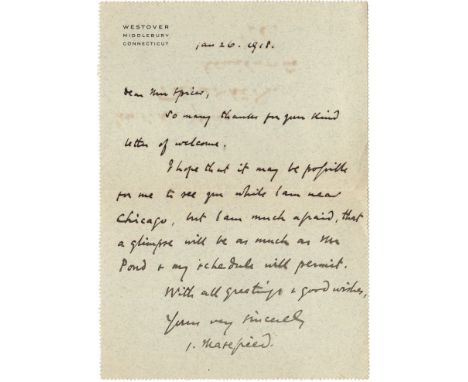 WESTOVER
MIDDLEBURY
CONNECTICUT
Jan 26. 1918.
Dear Mrs Spicer,
So many thanks for your kind
letter of welcome.
I hope that it may be possible
for me to see you while I am near
Chicago, but I am much afraid, that
a glimpse will be as much as Mr
Pond & my schedule will permit.
With all greetings & good wishes,
Yours very sincerely
J. Masefield.